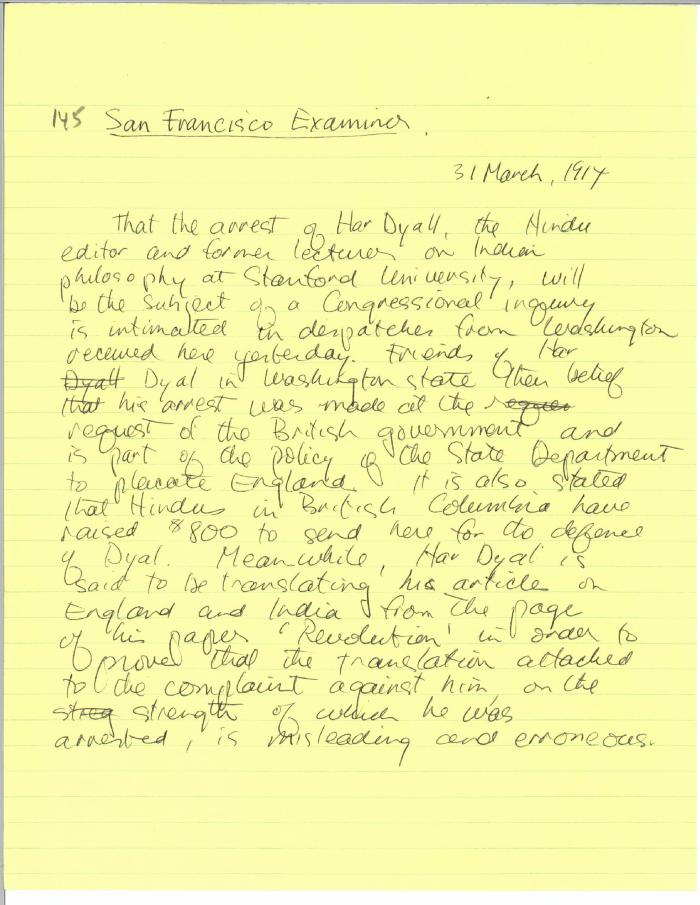 145 San Francisco Examiner.
31 March, 1914
That the arrest of Har Dyall, the Hindu
editor and former lecturer on Indian
philosophy at Stanford University, will
be the subject of a Congressional inquiry
is intimated in despatches from Washington
received here yesterday. Friends of Har
Dyall Dyal in Washington state their belief
that his arrest was made at the reques
request of the British government and
is part of the policy of the State Department
to placate England. It is also stated
that Hindus in British Columbia have
raised $800 to send here for the defence
of Dyal. Meanwhile, Har Dyal is
said to be translating his article on
England and India from the page
of his paper 'Revolution' in order to
prove that the translation attached
to the complaint against him, on the
streg strength of which he was
arrested, is misleading and erroneous.